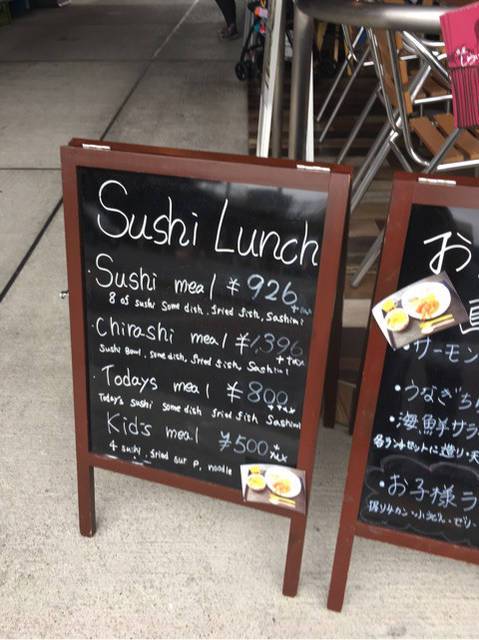 Sushi Lunch
Sushi meal ¥926 +tax
8 of sushi some dish, fried fish, sashimi
Chirashi meal ¥1,396 +tax
Sushi Bowl, some dish, fried fish, Sashimi
Todays meal ¥800 +tax
Today's sushi some dish fried fish Sashimi
Kid's meal ¥500 +tax
4 sushi, fried our p, noodle
お
・サーモン
・うなぎち
・海鮮サラ
各ランチセットに造り・天
・お子様ラ